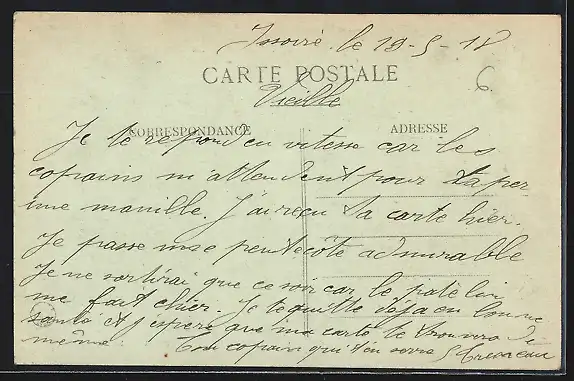 Issoire le 19-5-18
CARTE POSTALE
6
Vieille
CORRESPONDANCE
ADRESSE
Je te répond en vitesse car les
copains m'attendent pour taper
une manille. J'ai reçu ta carte hier.
Je passe une pentecôte admirable
Je ne sortirai que ce soir car le patelin
me fait chier. Je te quitte déjà en bonne
santé et j'espère que ma carte te trouvera de
même. Ton copain qui t'en serre 5